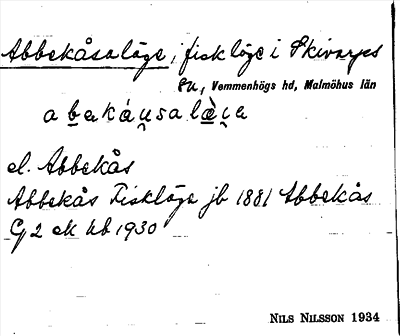 Abbekåsaläge, fiskläge i Skivarps
sn, Vemmenhögs hd, Malmöhus län
abekáu̯salɛ̀i̯ɛ
el. Abbekås
Abbekås Fiskläge jb 1881 Abbekås
G 2 ek hb 1930
NILS NILSSON 1934